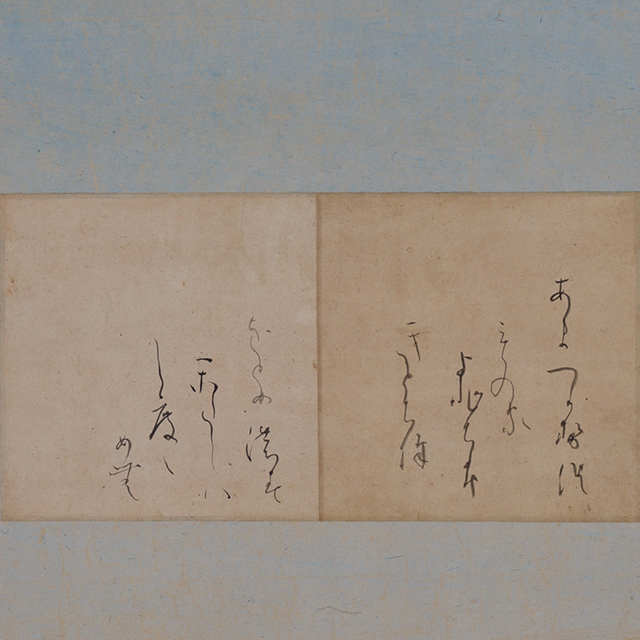 あまつかせく
ものか
よひちふ
きとちよ
をとめの
す
かたしは
しとゝ
めむ